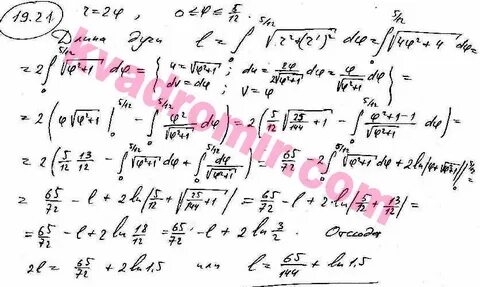 19.21 r = 2φ, 0 ≤ φ ≤ 5/12
Длина дуги l = ∫₀^{5/12} √(r² + (r')²) dφ = ∫₀^{5/12} √(4φ² + 4) dφ =
= 2 ∫₀^{5/12} √(φ²+1) dφ = { u = √(φ²+1) ; du = 2φ/(2√(φ²+1)) dφ = φ/√(φ²+1) ; dv = dφ ; v = φ } =
= 2 (φ √(φ²+1) |₀^{5/12} − ∫₀^{5/12} φ²/√(φ²+1) dφ) = 2 (5/12 √(25/144 + 1) − ∫₀^{5/12} (φ²+1−1)/√(φ²+1) dφ) =
= 2 (5/12 · 13/12 − ∫₀^{5/12} √(φ²+1) dφ + ∫₀^{5/12} dφ/√(φ²+1)) = 65/72 − 2 ∫₀^{5/12} √(φ²+1) dφ + 2 ln |φ + √(φ²+1)| |₀^{5/12} =
= 65/72 − l + 2 ln |5/12 + √(25/144 + 1)| = 65/72 − l + 2 ln |5/12 + 13/12| =
= 65/72 − l + 2 ln 18/12 = 65/72 − l + 2 ln 3/2. Отсюда
2l = 65/72 + 2 ln 1,5 или l = 65/144 + ln 1,5
kvadromir.com